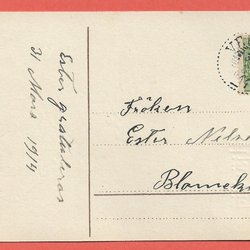 Ester gratuleras
31 Mars 1914
Fröken
Ester Nelse
Blomek